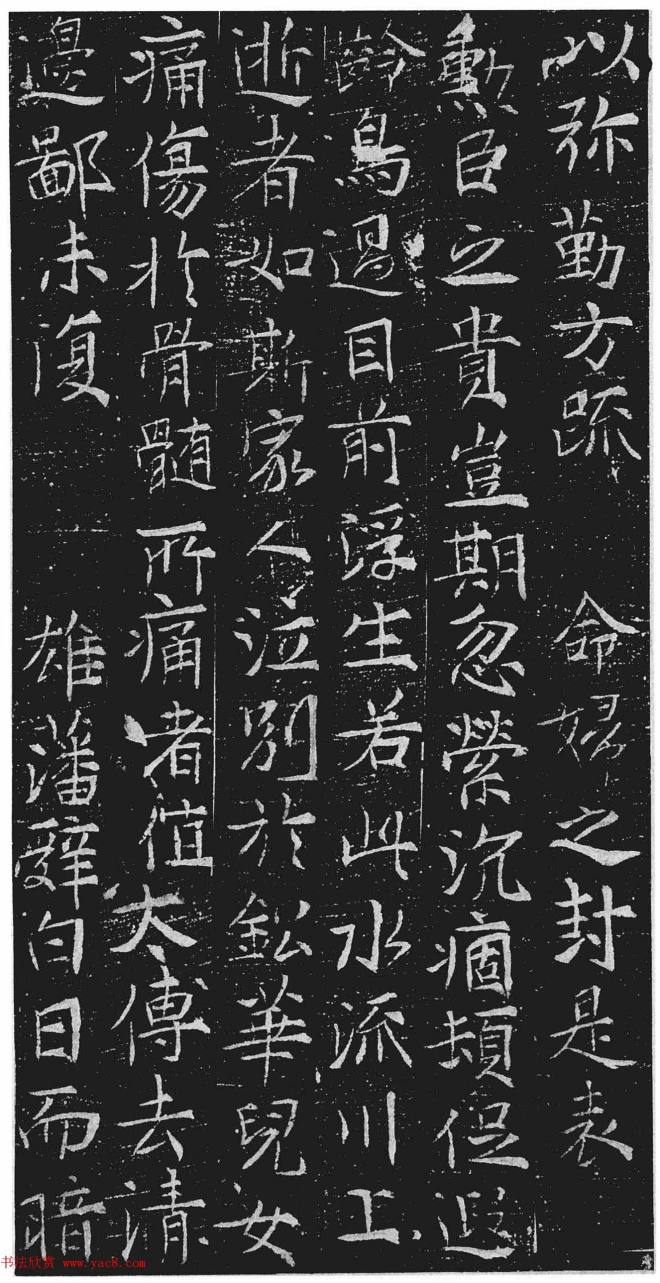 以弥勤方疏 命婦之封是表
勳臣之貴豈期忽縈沉痼頓促遐
齡鳥過目前浮生若此水流川上
逝者如斯家人泣別於鉛華兒女
痛傷於骨髓所痛者值太傅去清
邊鄙未復 雄藩辭白日而暗
书法欣赏 www.yac8.com